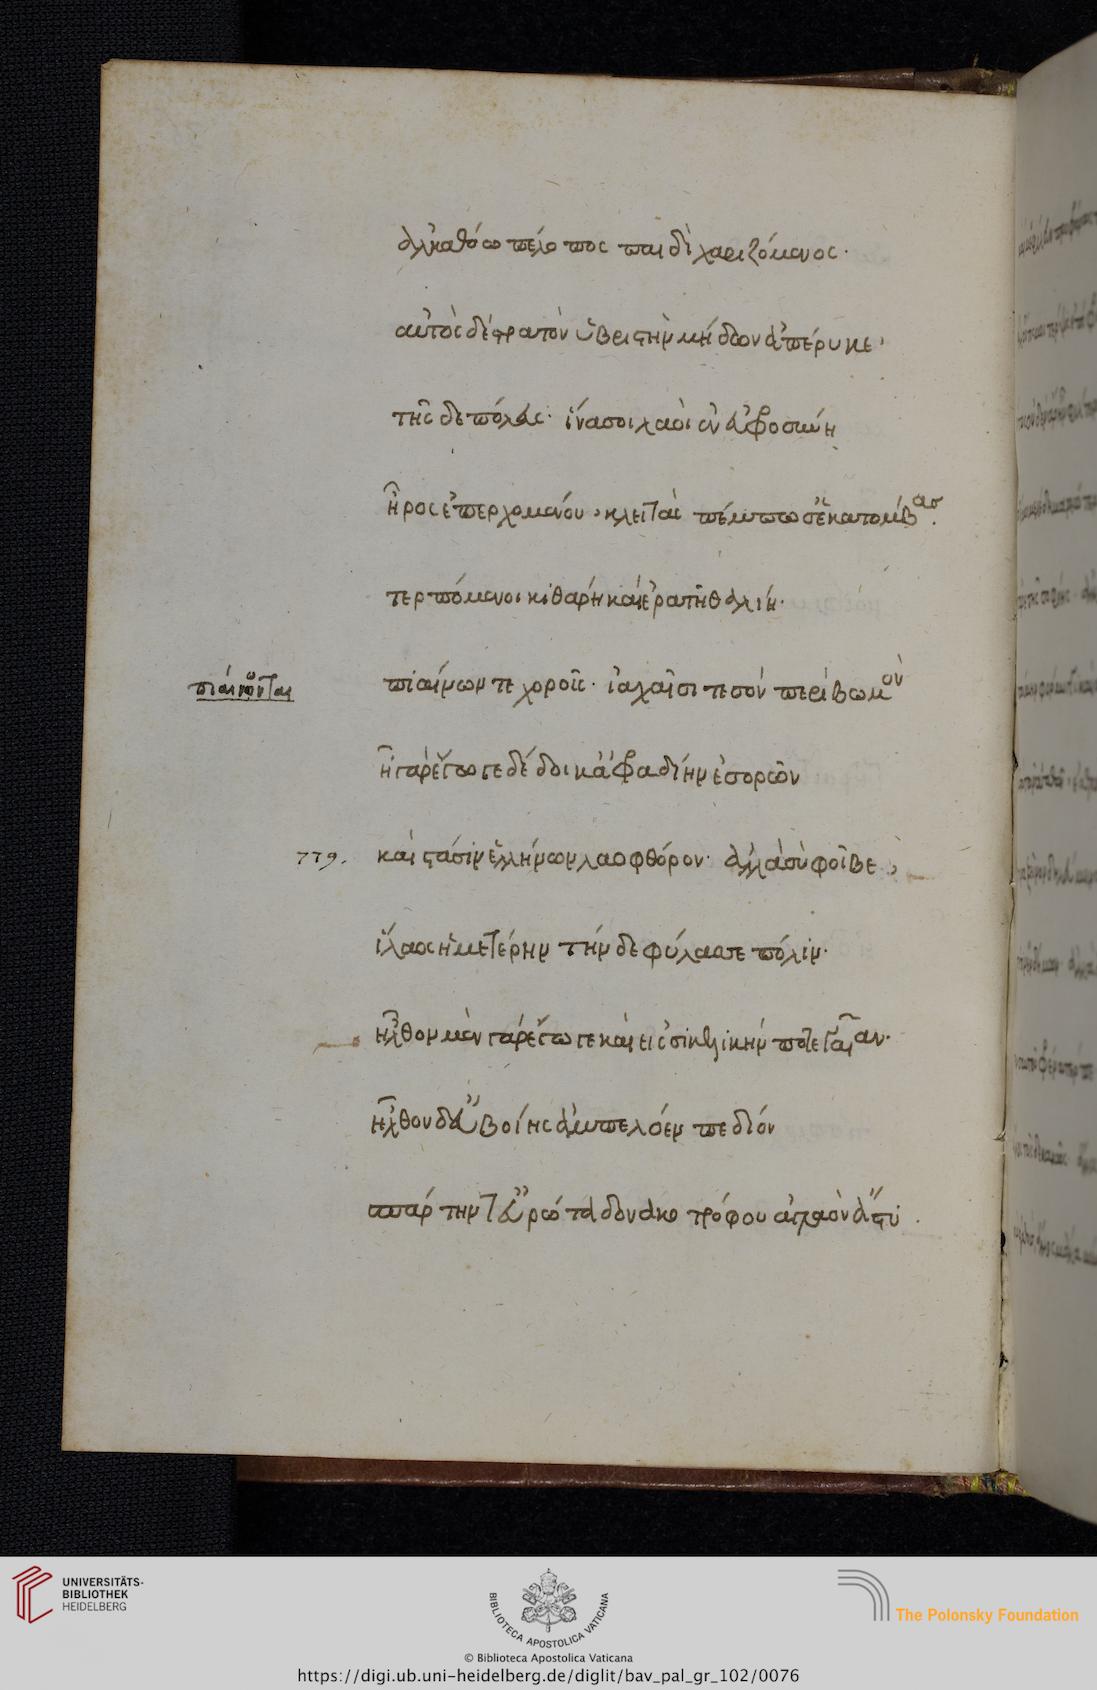 ἀλκαθόω πέλοπος παιδὶ χαριζόμενος·
αὐτὸς δὲ στρατὸν ὑβριστὴν μήδων ἀπέρυκε,
τῆς δὲ πόλευς· ἵνα σοι λαοὶ ἐν εὐφροσύνη
ἦρος ἐπερχομένου, κλειτὰς πέμπωσ' ἑκατόμβας.
τερπόμενοι κιθάρη καὶ ἐρατῆ θαλίη·
παιήνων τε χοροῖς· ἰαχαῖσι τε σὸν περὶ βωμὸν
ἦ γὰρ ἔγωγε δέδοικ' ἀφραδίην ἐσορῶν
779. καὶ στάσιν ἑλλήνων λαοφθόρον· ἀλλὰ σὺ φοῖβε,
ἵλαος ἡμετέρην τήνδε φύλασσε πόλιν·
ἦλθον μὲν γὰρ ἔγωγε καὶ εἰς σικελικήν ποτε γαῖαν·
ἦλθον δ' εὐβοίης ἀμπελόεν πεδίον
σπάρτην τ' εὐρώτα δονακοτρόφου ἀγλαὸν ἄστυ.
UNIVERSITÄTS-
BIBLIOTHEK
HEIDELBERG
BIBLIOTECA APOSTOLICA VATICANA
The Polonsky Foundation
© Biblioteca Apostolica Vaticana
https://digi.ub.uni-heidelberg.de/diglit/bav_pal_gr_102/0076